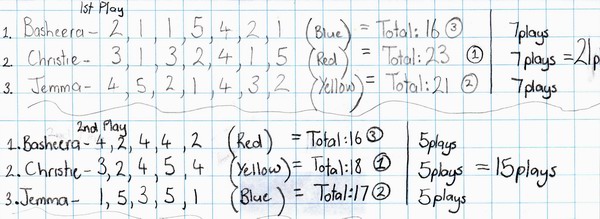 1st Play
1. Basheera - 2, 1, 1, 5, 4, 2, 1 (Blue) = Total: 16 ③ 7plays
2. Christie - 3, 1, 3, 2, 4, 1, 5 (Red) = Total: 23 ① 7plays = 21p
3. Jemma - 4, 5, 2, 1, 4, 3, 2 (Yellow) = Total: 21 ② 7plays
2nd Play
1. Basheera - 4, 2, 4, 4, 2 (Red) = Total: 16 ③ 5plays
2. Christie - 3, 2, 4, 5, 4 (Yellow) = Total: 18 ① 5plays = 15plays
3. Jemma - 1, 5, 3, 5, 1 (Blue) = Total: 17 ② 5plays